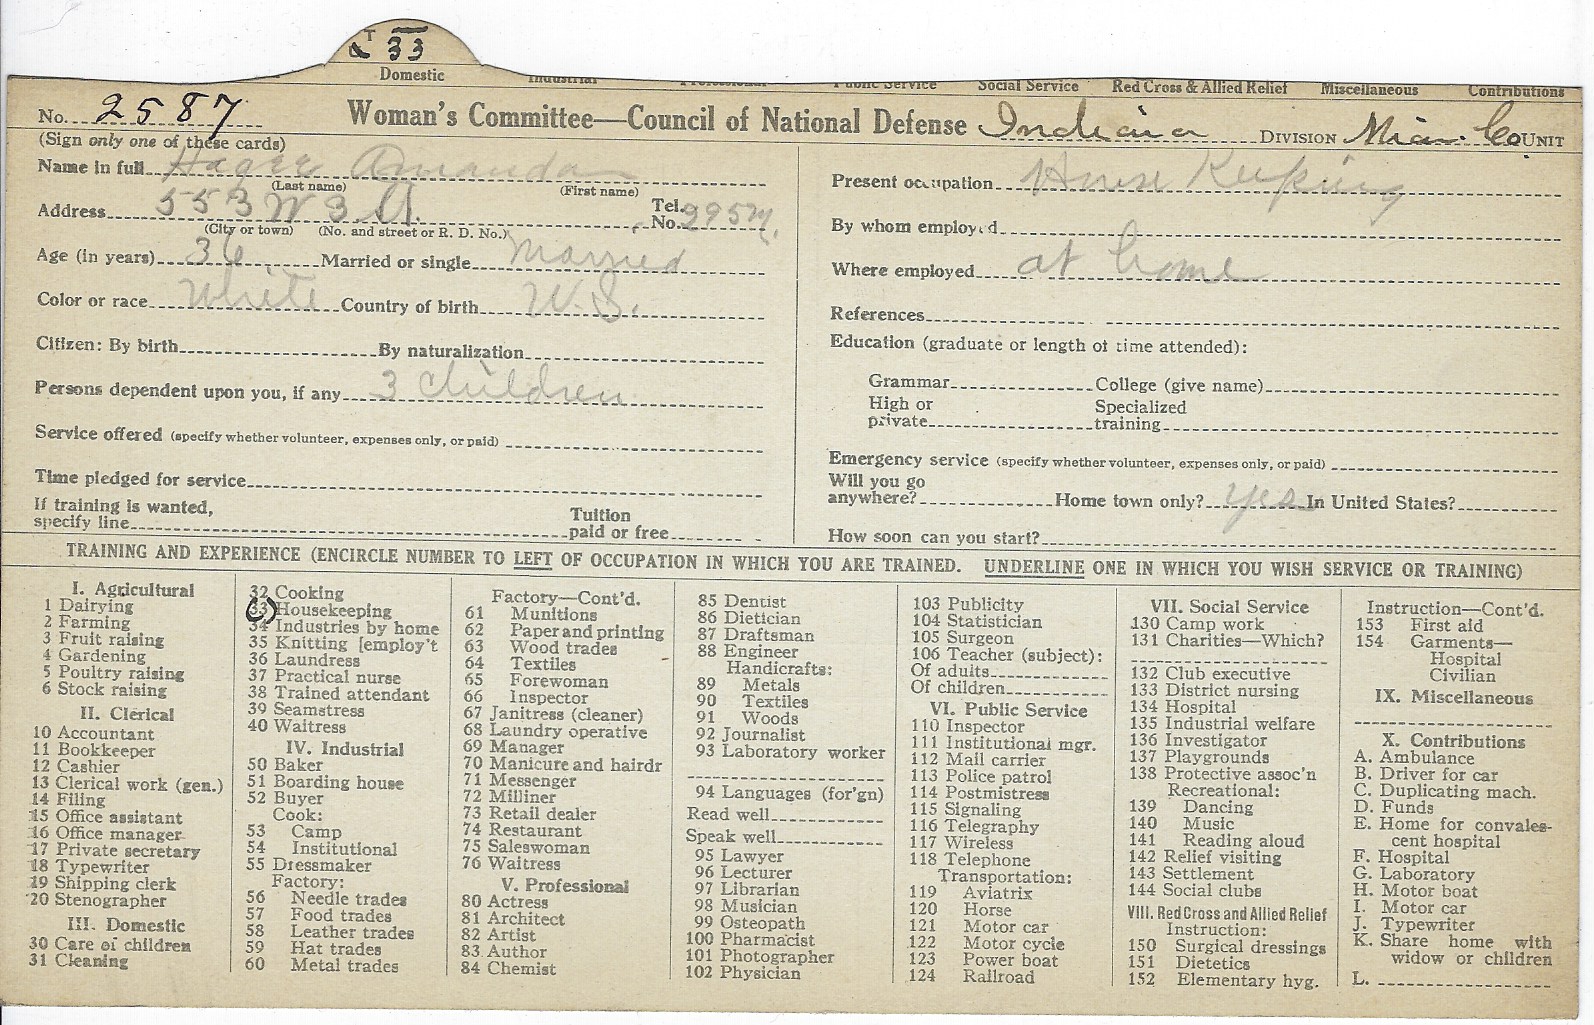 T 33
Domestic Industrial Professional Public Service Social Service Red Cross & Allied Relief Miscellaneous Contributions
No. 2587 Woman's Committee—Council of National Defense Indiana DIVISION Miami Co. UNIT
(Sign only one of these cards)
Name in full Hager Amanda
(Last name) (First name)
Address 553 W 3 St. Tel. No. 295
(City or town) (No. and street or R. D. No.)
Age (in years) 36 Married or single Married
Color or race White Country of birth U.S.
Citizen: By birth By naturalization
Persons dependent upon you, if any 3 children
Service offered (specify whether volunteer, expenses only, or paid)
Time pledged for service
If training is wanted,
specify line Tuition paid or free
Present occupation House Keeping
By whom employed
Where employed at home
References
Education (graduate or length of time attended):
Grammar College (give name)
High or private Specialized training
Emergency service (specify whether volunteer, expenses only, or paid)
Will you go
anywhere? Home town only? Yes In United States?
How soon can you start?
TRAINING AND EXPERIENCE (ENCIRCLE NUMBER TO LEFT OF OCCUPATION IN WHICH YOU ARE TRAINED. UNDERLINE ONE IN WHICH YOU WISH SERVICE OR TRAINING)
I. Agricultural
1 Dairying
2 Farming
3 Fruit raising
4 Gardening
5 Poultry raising
6 Stock raising
II. Clerical
10 Accountant
11 Bookkeeper
12 Cashier
13 Clerical work (gen.)
14 Filing
15 Office assistant
16 Office manager
17 Private secretary
18 Typewriter
19 Shipping clerk
20 Stenographer
III. Domestic
30 Care of children
31 Cleaning
32 Cooking
33 Housekeeping
34 Industries by home
35 Knitting [employ't
36 Laundress
37 Practical nurse
38 Trained attendant
39 Seamstress
40 Waitress
IV. Industrial
50 Baker
51 Boarding house
52 Buyer
Cook:
53 Camp
54 Institutional
55 Dressmaker
Factory:
56 Needle trades
57 Food trades
58 Leather trades
59 Hat trades
60 Metal trades
Factory—Cont'd.
61 Munitions
62 Paper and printing
63 Wood trades
64 Textiles
65 Forewoman
66 Inspector
67 Janitress (cleaner)
68 Laundry operative
69 Manager
70 Manicure and hairdr
71 Messenger
72 Milliner
73 Retail dealer
74 Restaurant
75 Saleswoman
76 Waitress
V. Professional
80 Actress
81 Architect
82 Artist
83 Author
84 Chemist
85 Dentist
86 Dietician
87 Draftsman
88 Engineer
Handicrafts:
89 Metals
90 Textiles
91 Woods
92 Journalist
93 Laboratory worker
94 Languages (for'gn)
Read well
Speak well
95 Lawyer
96 Lecturer
97 Librarian
98 Musician
99 Osteopath
100 Pharmacist
101 Photographer
102 Physician
103 Publicity
104 Statistician
105 Surgeon
106 Teacher (subject):
Of adults
Of children
VI. Public Service
110 Inspector
111 Institutional mgr.
112 Mail carrier
113 Police patrol
114 Postmistress
115 Signaling
116 Telegraphy
117 Wireless
118 Telephone
Transportation:
119 Aviatrix
120 Horse
121 Motor car
122 Motor cycle
123 Power boat
124 Railroad
VII. Social Service
130 Camp work
131 Charities—Which?
132 Club executive
133 District nursing
134 Hospital
135 Industrial welfare
136 Investigator
137 Playgrounds
138 Protective assoc'n
Recreational:
139 Dancing
140 Music
141 Reading aloud
142 Relief visiting
143 Settlement
144 Social clubs
VIII. Red Cross and Allied Relief
Instruction:
150 Surgical dressings
151 Dietetics
152 Elementary hyg.
Instruction—Cont'd.
153 First aid
154 Garments—
Hospital
Civilian
IX. Miscellaneous
X. Contributions
A. Ambulance
B. Driver for car
C. Duplicating mach.
D. Funds
E. Home for convales-
cent hospital
F. Hospital
G. Laboratory
H. Motor boat
I. Motor car
J. Typewriter
K. Share home with
widow or children
L.